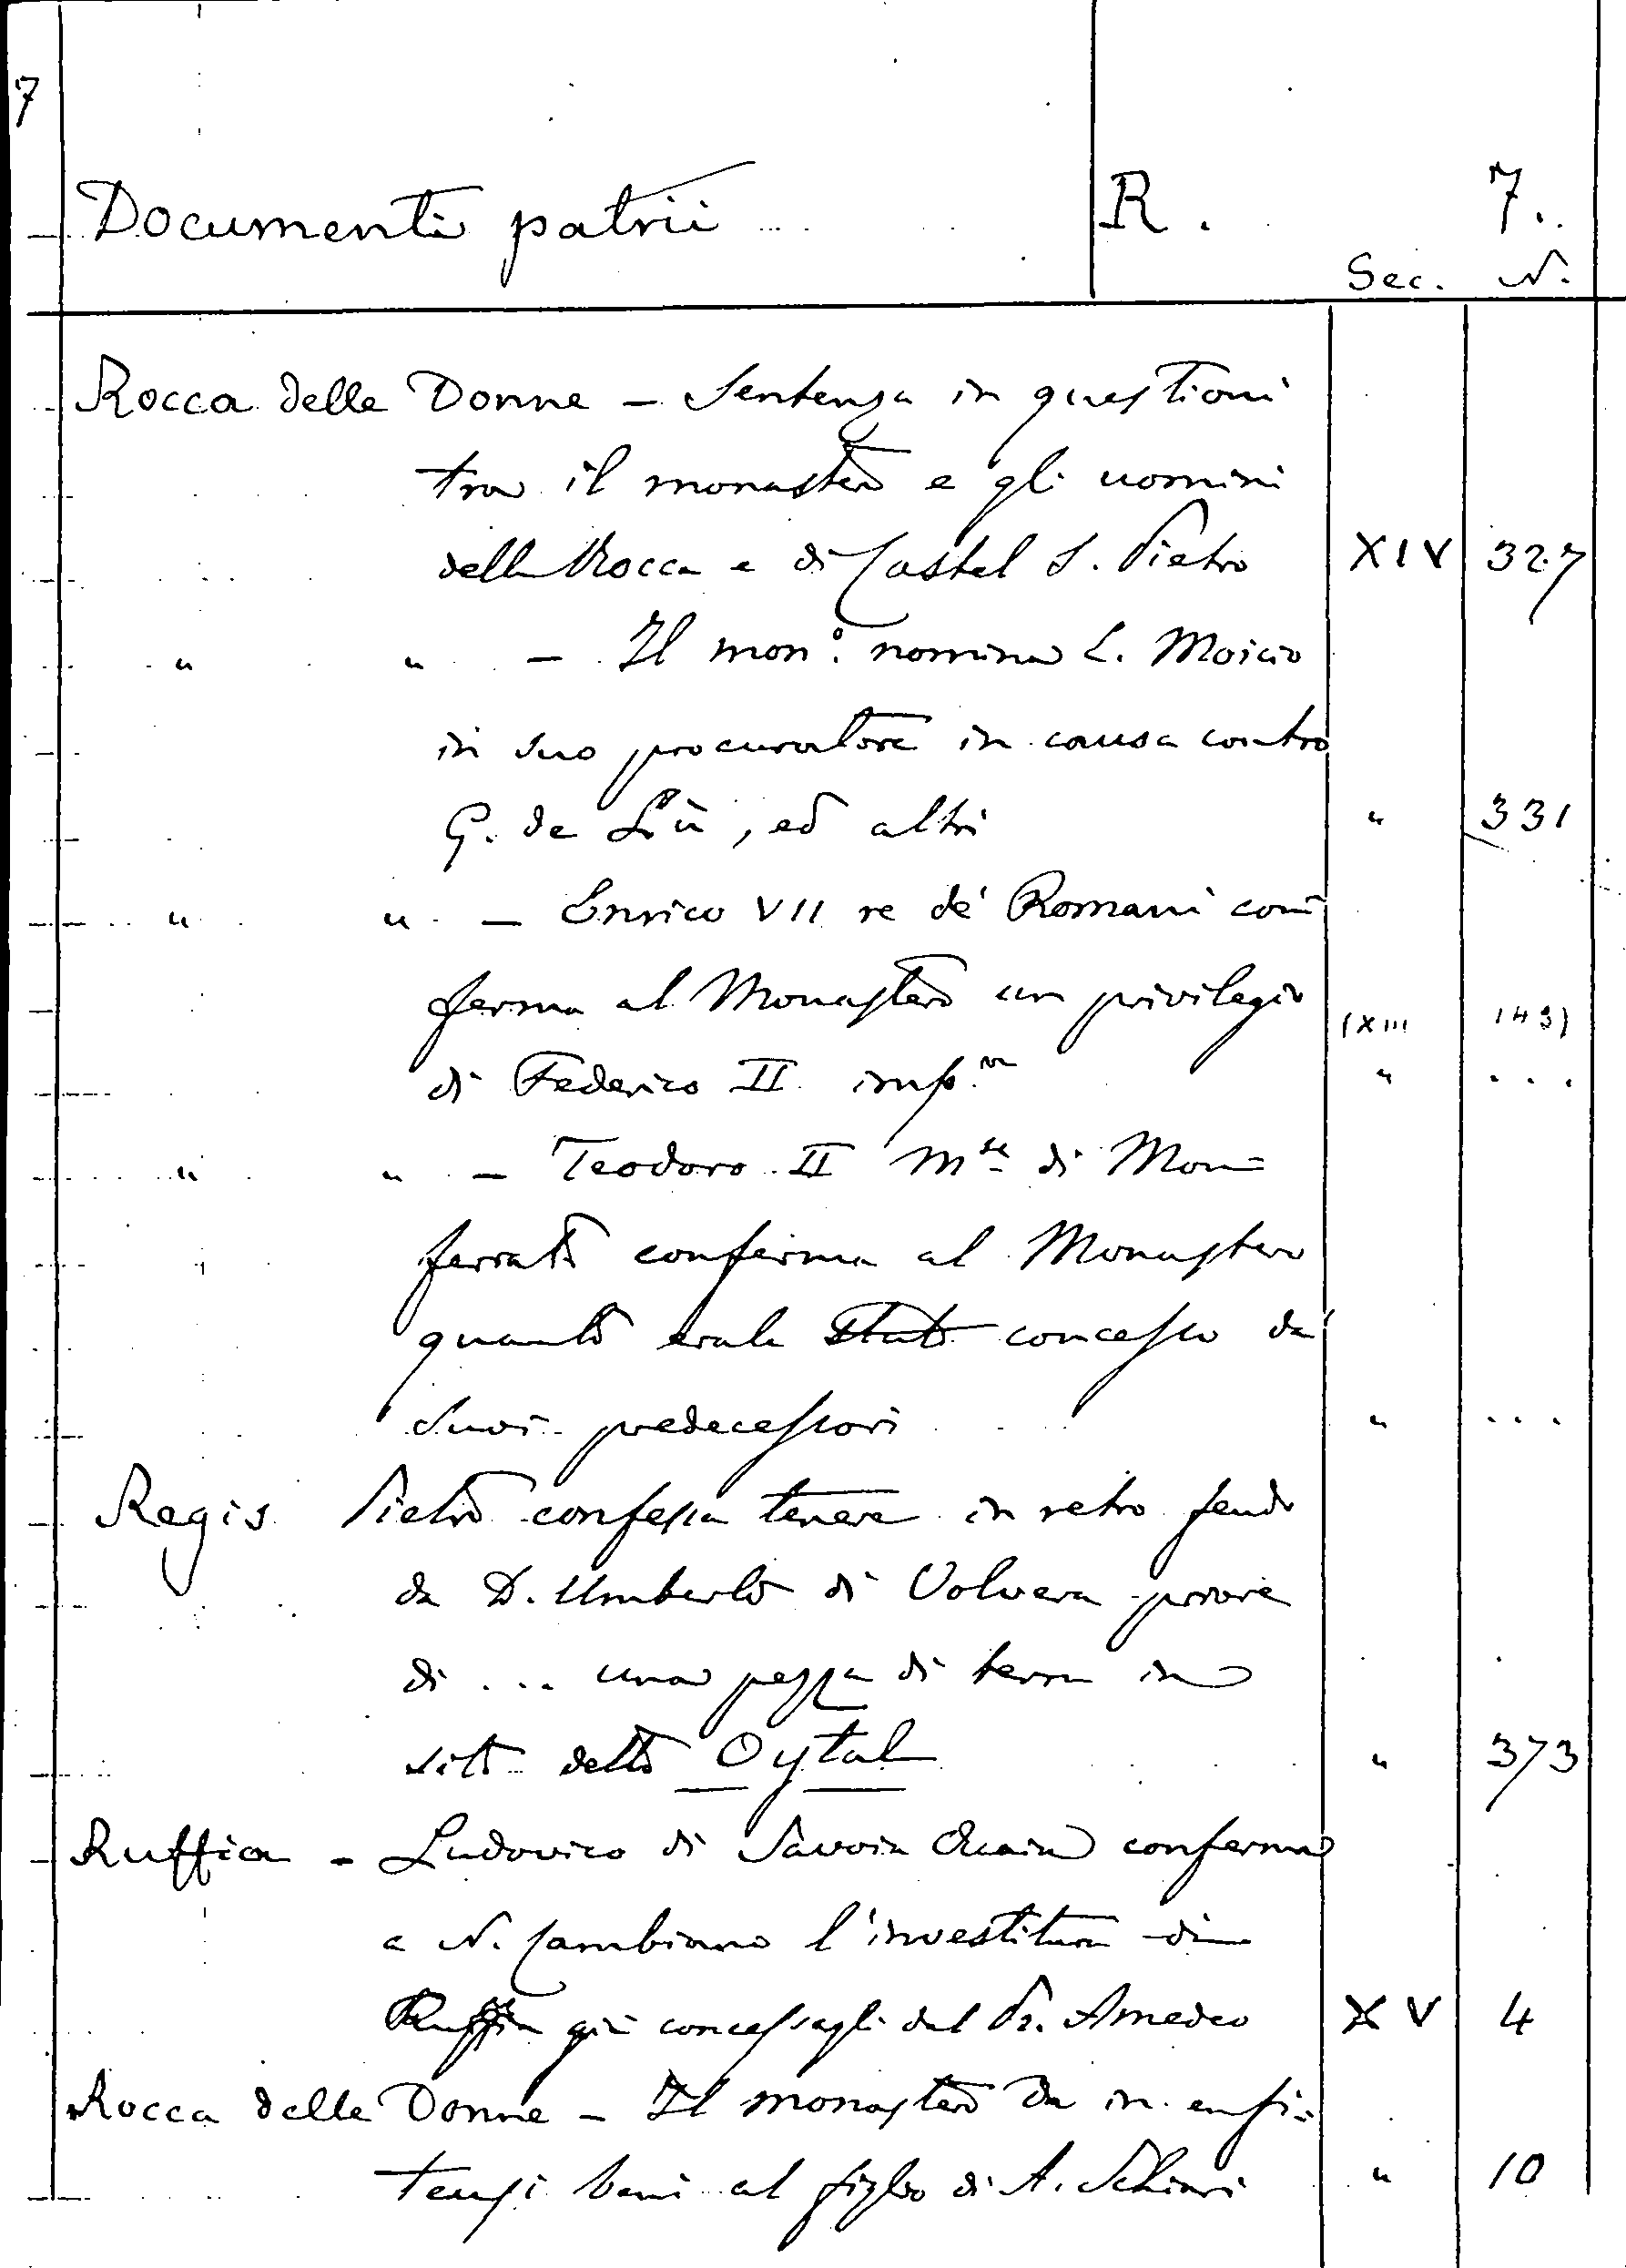 7
Documenti patrii R. 7.
Sec. N.
Rocca delle Donne - Sentenza in questioni
tra il monastero e gli uomini
della Rocca e di Castel S. Pietro XIV 327
" " - Il mon.o nomina L. Moicio
in suo procuratore in causa contro
G. de Liù, ed altri " 331
" " - Enrico VII re de' Romani con=
ferma al Monastero un privilegio (XIII 143)
di Federico II imp.re " ...
" " - Teodoro II Mse di Mon=
ferrato conferma al Monastero
quanto erale stato concesso da'
suoi predecessori " ...
Regis Pietro confessa tenere in retro feudo
da D. Umberto di Volvera priore
di ... una pezza di terra in
sito detto Oytal " 373
Ruffia - Ludovico di Savoia Acaia conferma
a N. Cambiano l'investitura di
Ruffia già concessagli dal Pr. Amedeo XV 4
Rocca delle Donne - Il monastero da in enfi=
teusi beni al figlio di A. Schiari " 10